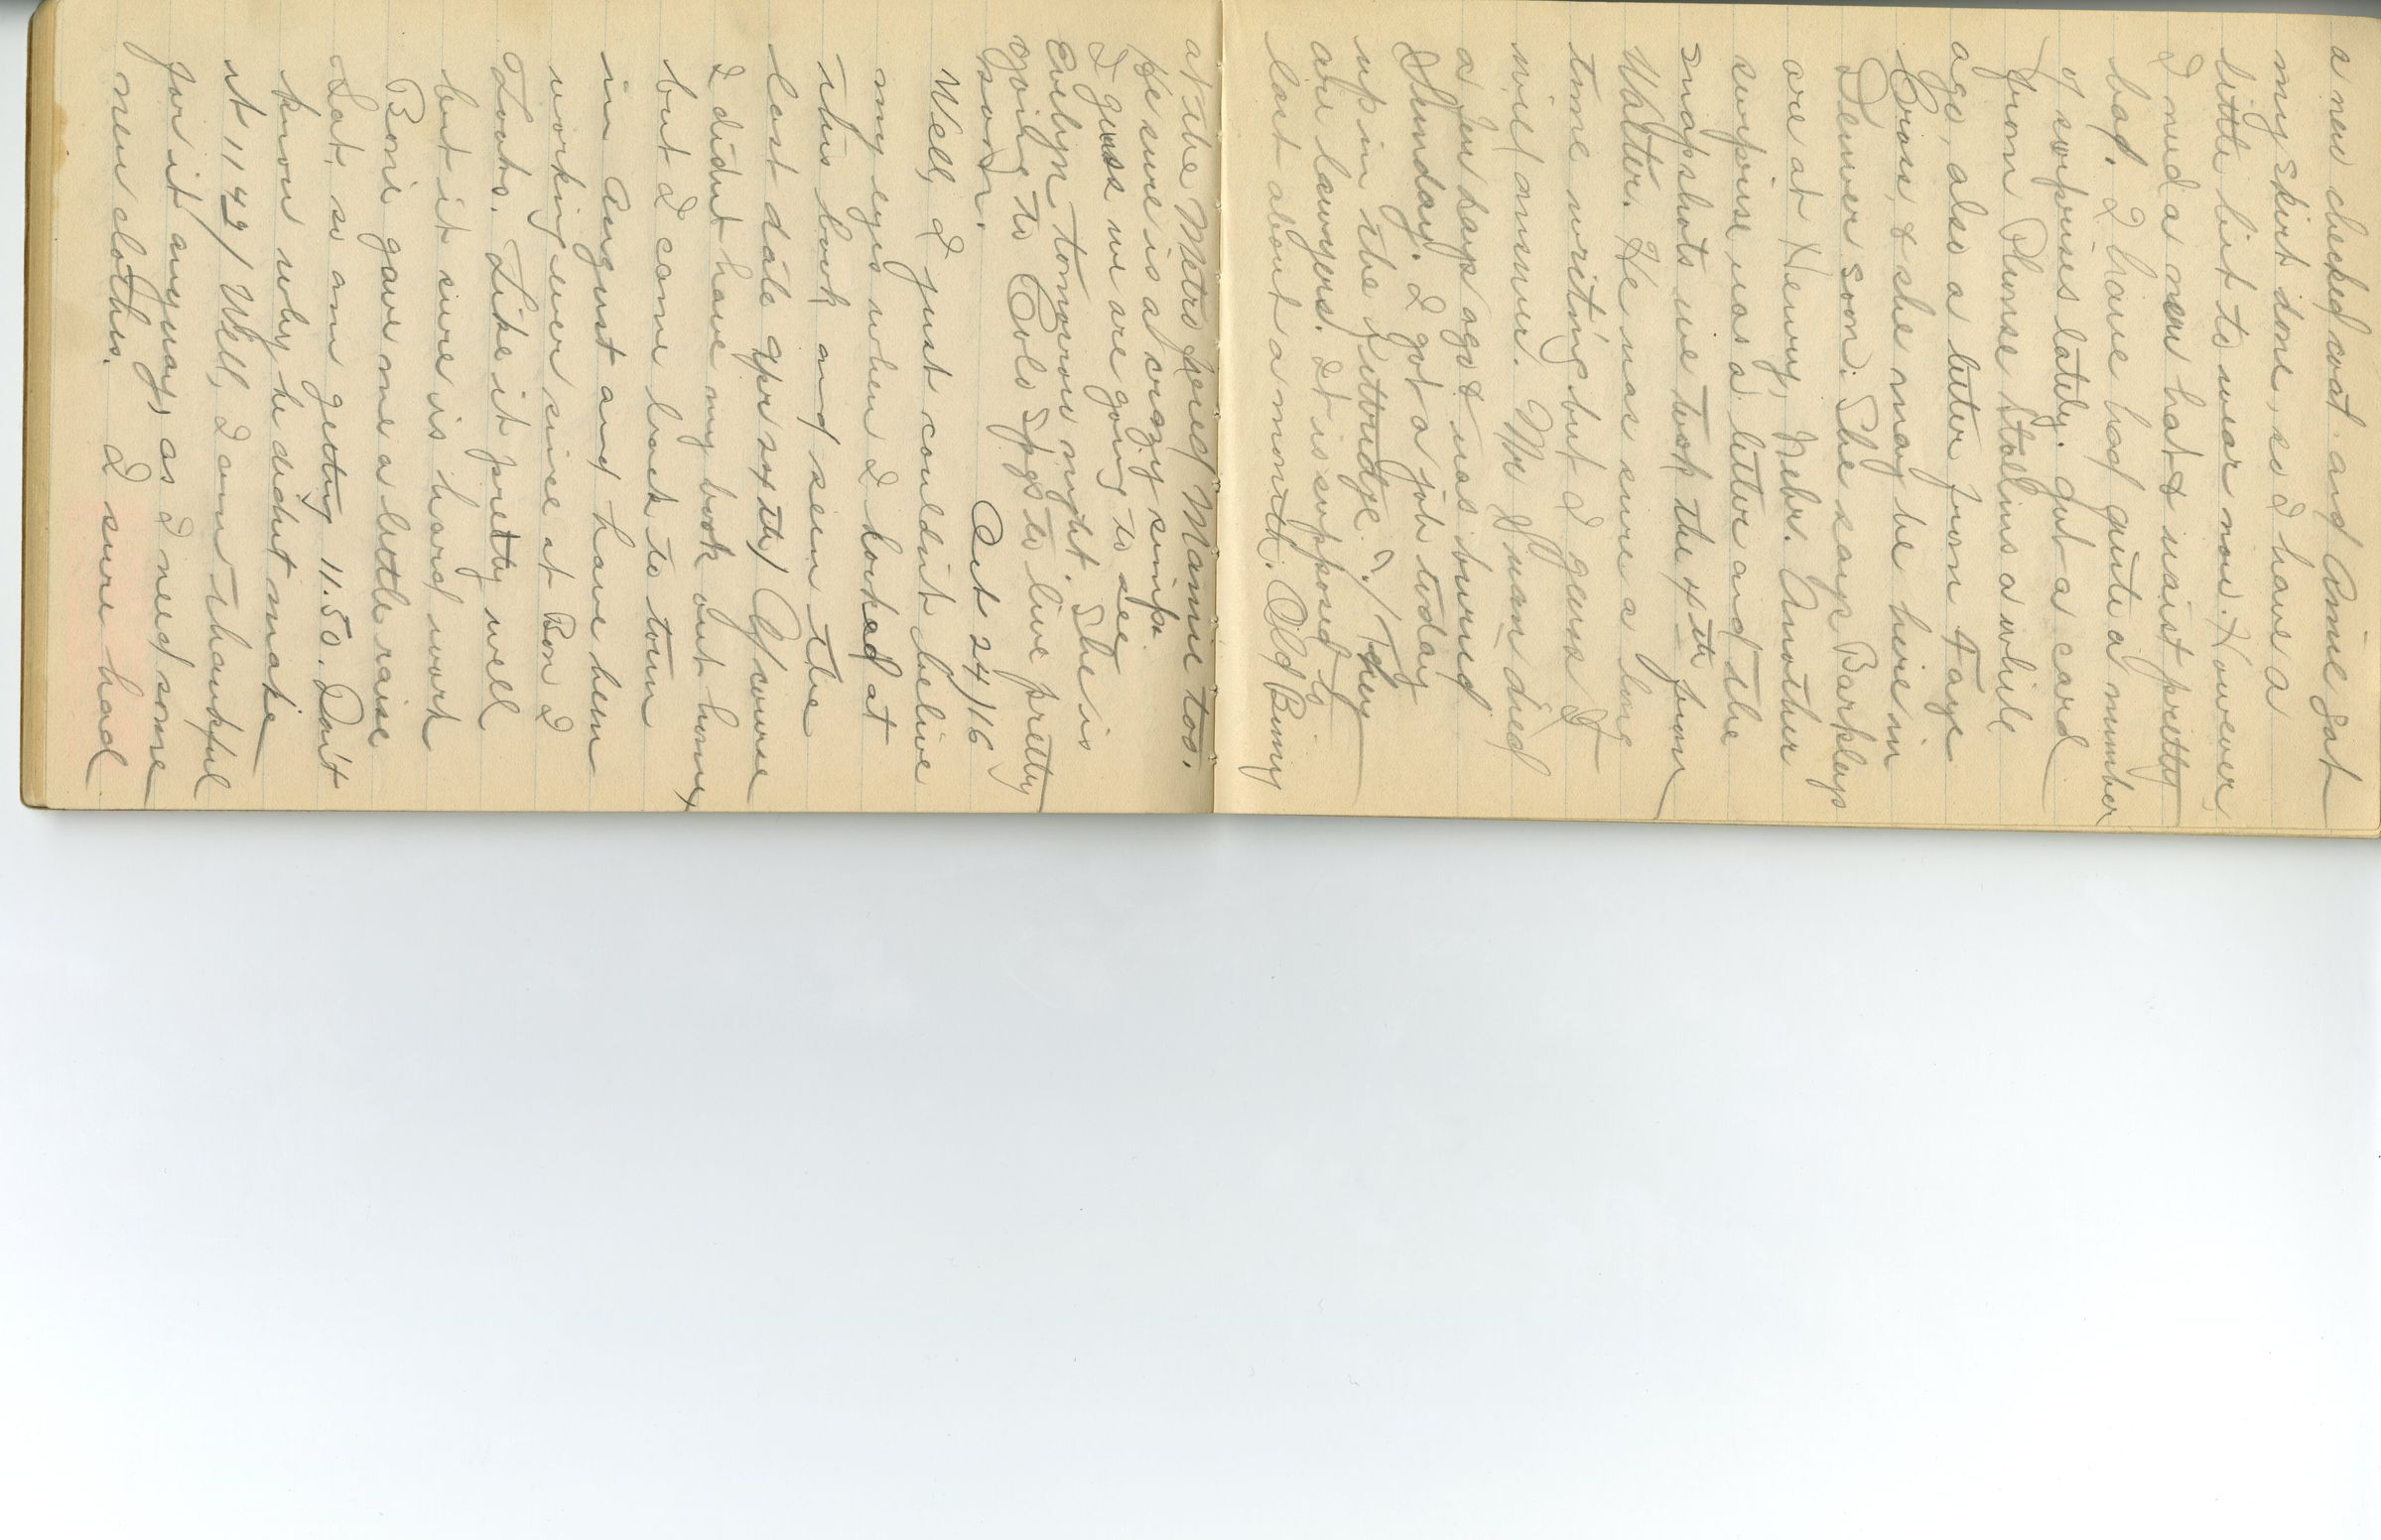 a new checked coat. and Amie got
my skirt done, so I have a
little bit to wear now. However,
I need a new hat & waist pretty
bad. I have had quite a number
of surprises lately. got a card
from Plumse Stallins a while
ago, also a letter from Faye
Cross, & she may be here in
Denver soon. She says Barkleys
are at Henry, Nebr. Another
surprise was a letter and the
snapshots we took the 4th from
Walter. He was sure a long
time writing but I guess I
will answer. Mr Juan died
a few days ago & was buried
Sunday. I got a job today
up in the Kittredge. They
are lawyers. It is supposed to
last about a month. Old Bimy
at the Metro fired Mamie too.
He sure is a crazy simp.
I guess we are going to see
Evelyn tomorrow night. She is
going to Colo Spgs to live pretty
soon.
Oct 24/16
Well, I just couldn't belive
my eyes when I looked at
this book and seen the
last date Apr sxth/ Of course
I didnt have my book out home,
but I came back to town
in August and have been
working ever since at Bon I
Looks. Like it pretty well
but it sure is hard work
Bonie gave me a little raise
Sat, so am getting 11.50. Don't
know why he didnt make
it 11 49/ Well, I am thankful
for it anyway, as I need some
new clothes. I sure had